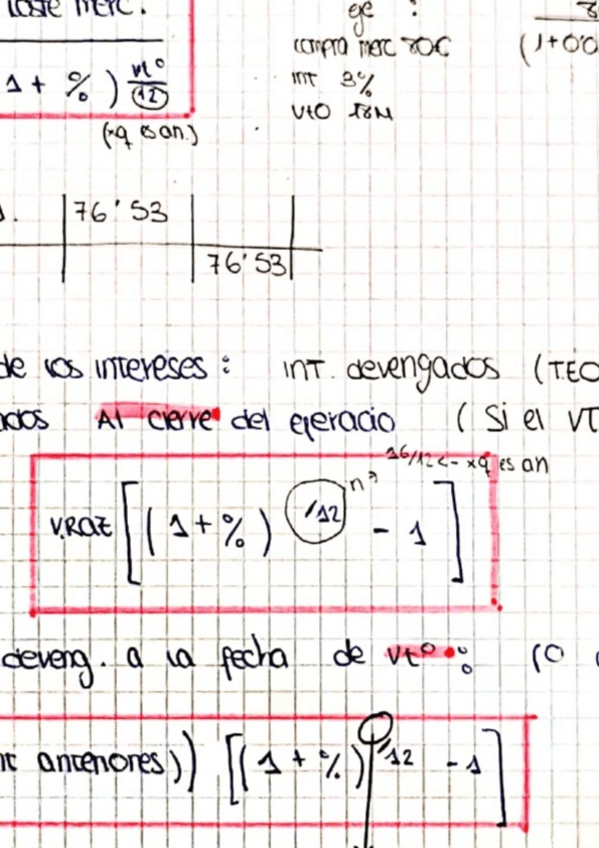 coste merc.
1 + % ) nº/12
(xq es an.)
eje :
compra merc 80€
int 3%
vto 18M
(1+0'0
76'53
76'53
de los intereses : INT. devengados (TEO
ados Al cierre del ejercicio ( Si el VT
16/12 <- xq es an
V.RAZ [( 1 + % ) /12 nº - 1 ]
deveng. a la fecha de vtº :
anteriores)) [( 1 + % ) /12 - 1 ]